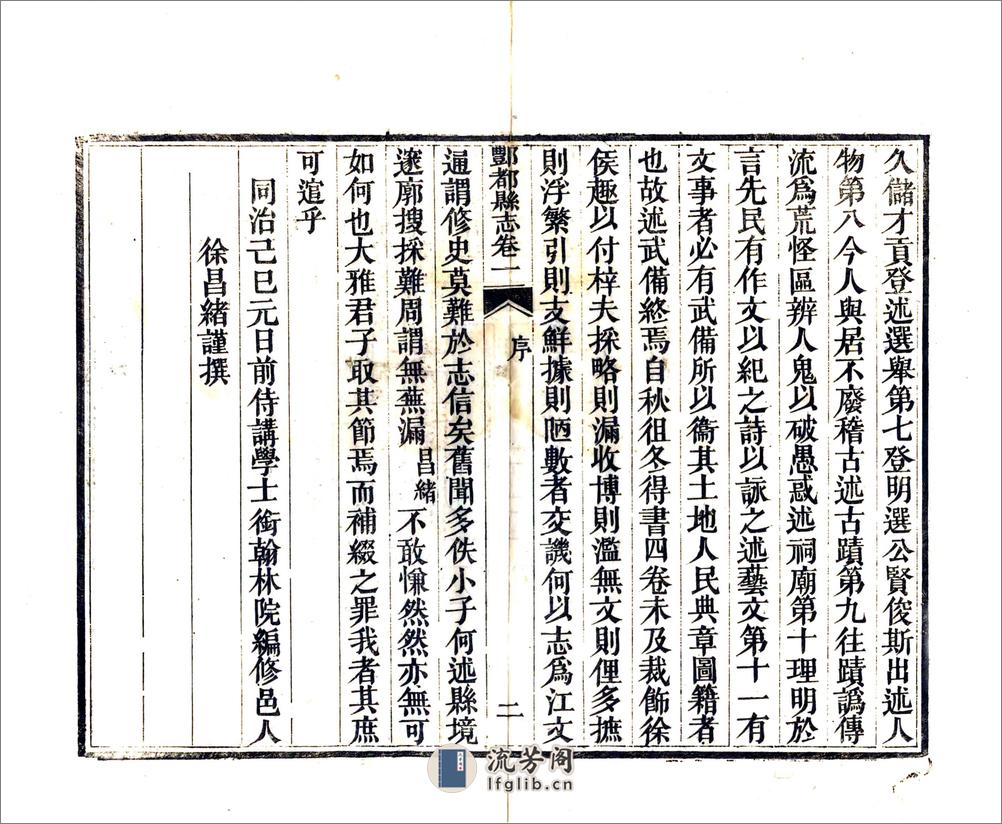 久儲才貢登述選舉第七登明選公賢俊斯出述人
物第八今人與居不廢稽古述古蹟第九往蹟譌傳
流爲荒怪區辨人鬼以破愚惑述祠廟第十理明於
言先民有作文以紀之詩以詠之述藝文第十一有
文事者必有武備所以衞其土地人民典章圖籍者
也故述武備終焉自秋徂冬得書四卷未及裁飾徐
侯趣以付梓夫採略則漏收博則濫無文則俚多摭
則浮繁引則支鮮據則陋數者交譏何以志爲江文
酆都縣志卷一 序 二
通謂修史莫難於志信矣舊聞多佚小子何述縣境
邃廓搜採難周謂無蕪漏昌緒不敢慊然然亦無可
如何也大雅君子取其節焉而補綴之罪我者其庶
可逭乎
同治己巳元日前侍講學士銜翰林院編修邑人
徐昌緒謹撰
流芳阁
lfglib.cn